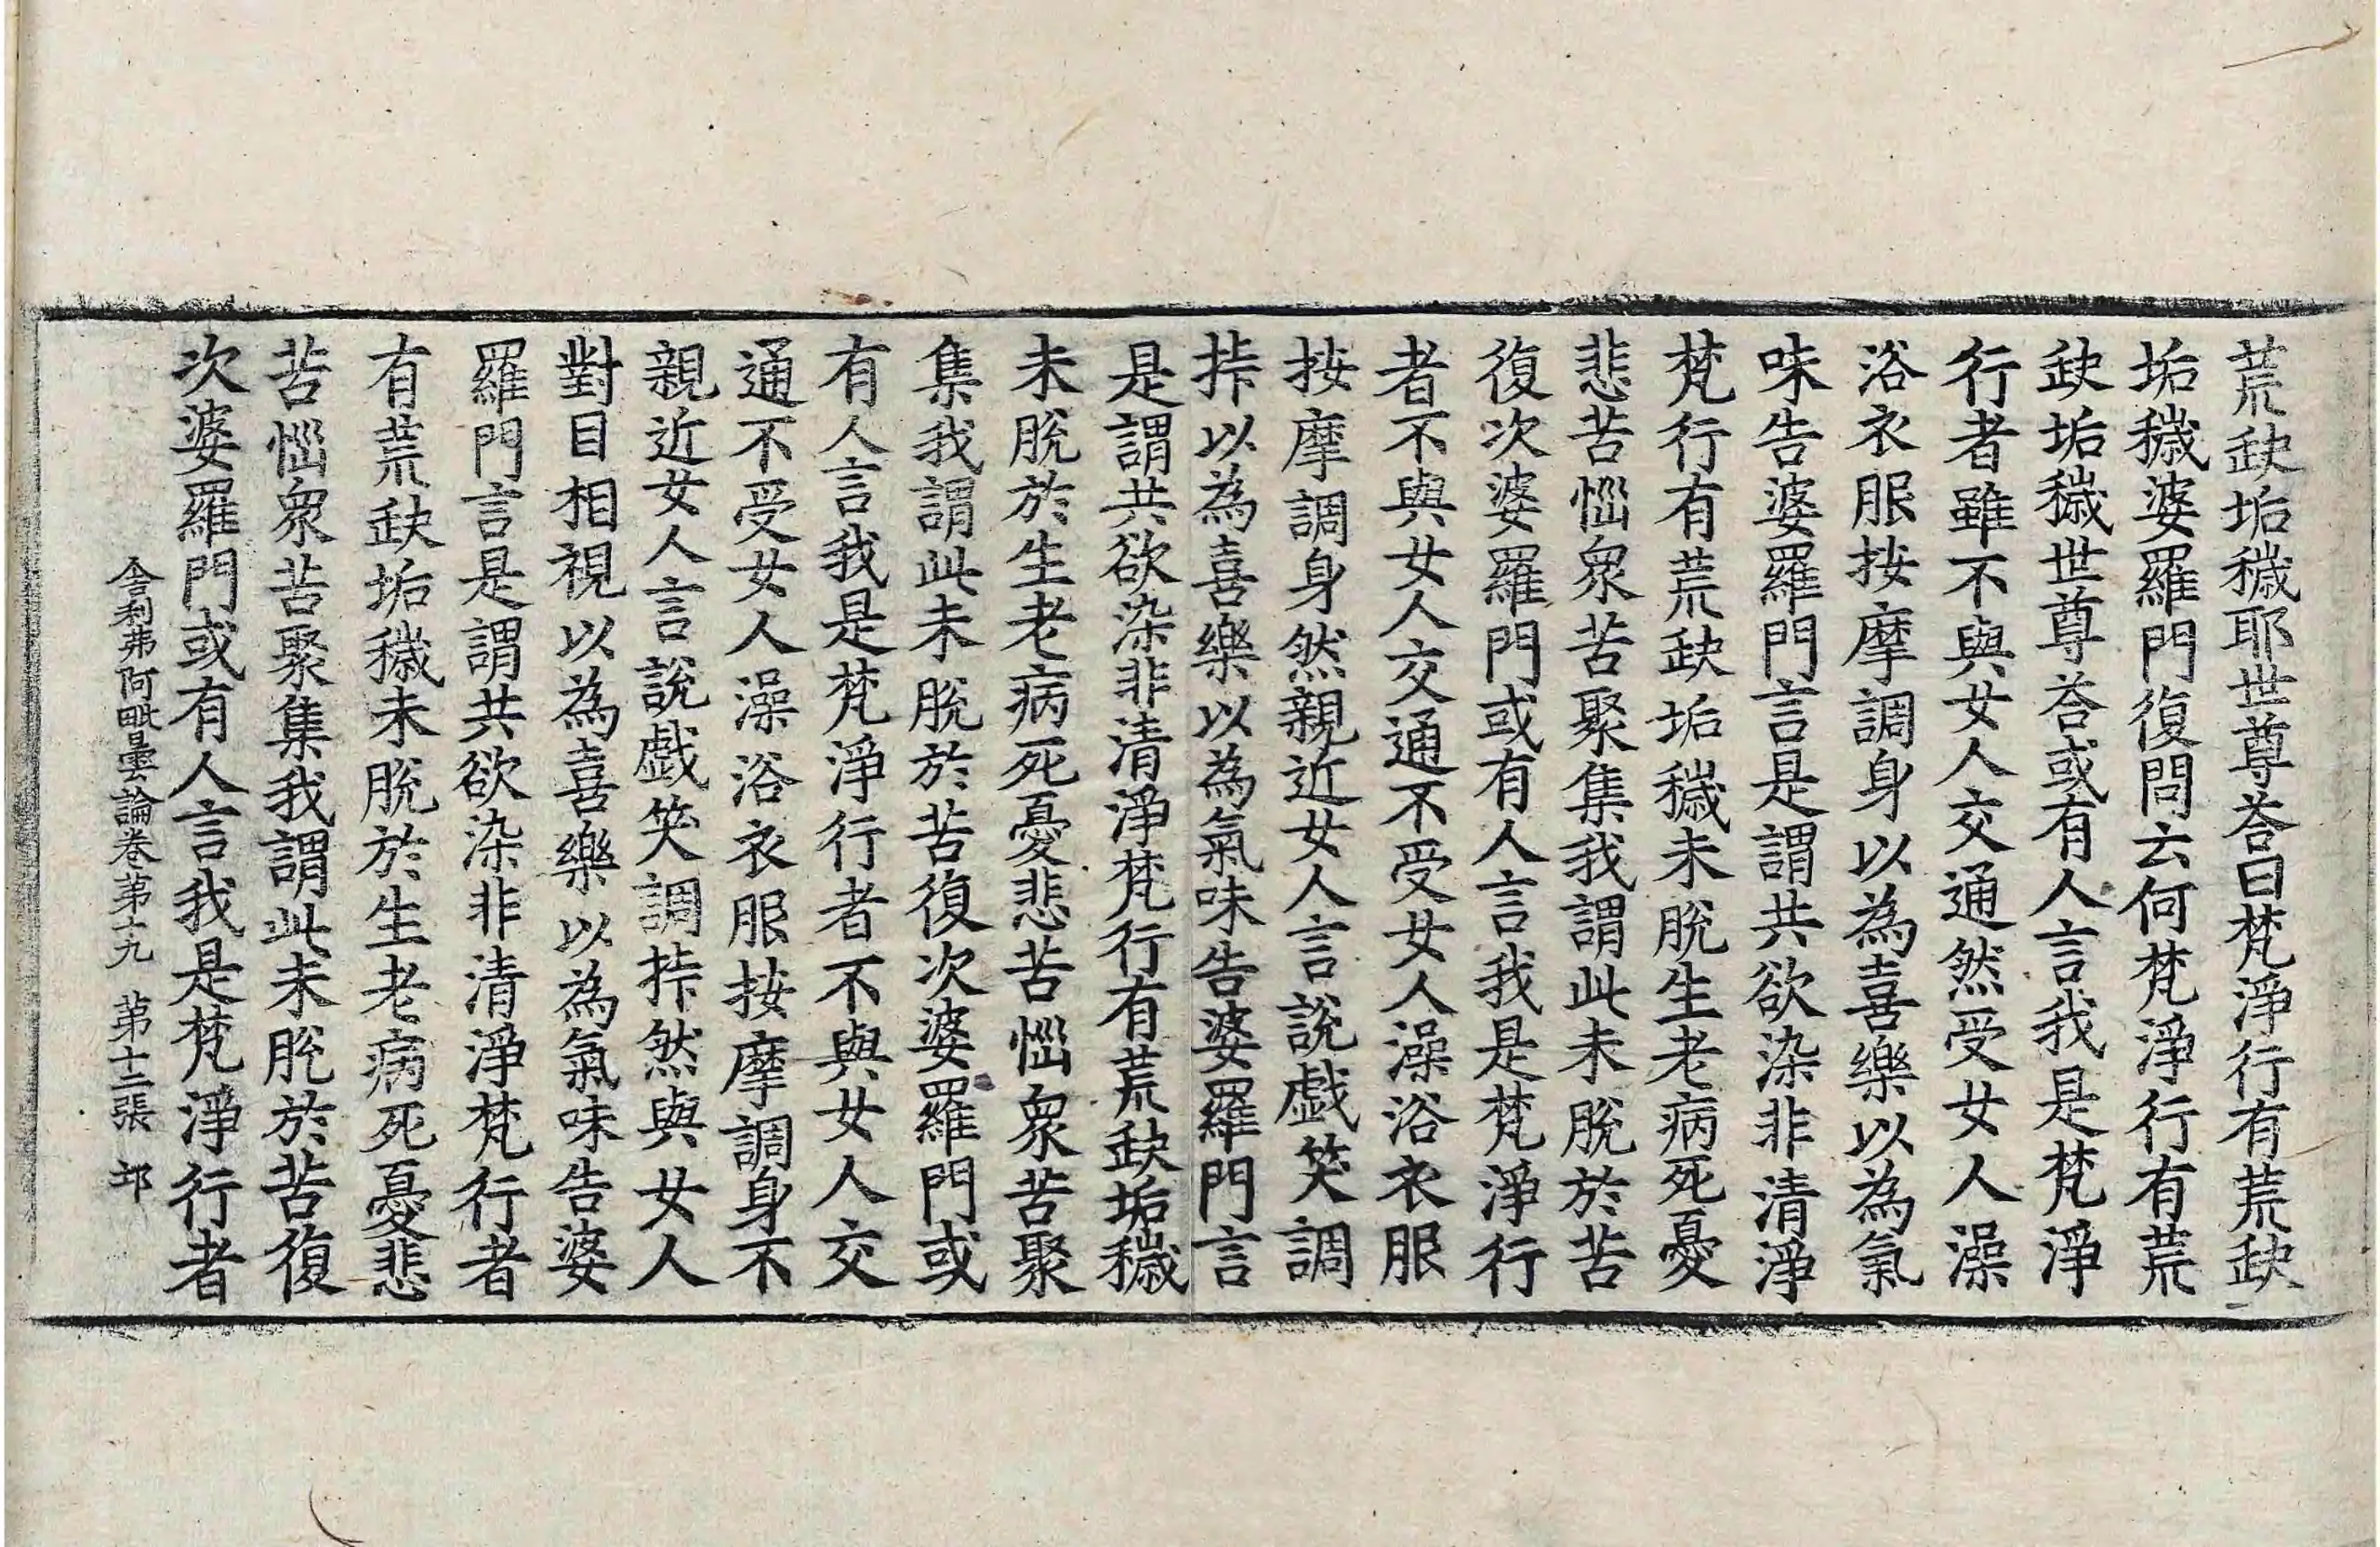 荒缺垢穢耶世尊荅曰梵淨行有荒缺
垢穢婆羅門復問云何梵淨行有荒
缺垢穢世尊荅或有人言我是梵淨
行者雖不與女人交通然受女人澡
浴衣服按摩調身以為喜樂以為氣
味告婆羅門言是謂共欲染非清淨
梵行有荒缺垢穢未脫生老病死憂
悲苦惱衆苦聚集我謂此未脫於苦
復次婆羅門或有人言我是梵淨行
者不與女人交通不受女人澡浴衣服
按摩調身然親近女人言說戲笑調
㧗以為喜樂以為氣味告婆羅門言
是謂共欲染非清淨梵行有荒缺垢穢
未脫於生老病死憂悲苦惱衆苦聚
集我謂此未脫於苦復次婆羅門或
有人言我是梵淨行者不與女人交
通不受女人澡浴衣服按摩調身不
親近女人言說戲笑調㧗然與女人
對目相視以為喜樂以為氣味告婆
羅門言是謂共欲染非清淨梵行者
有荒缺垢穢未脫於生老病死憂悲
苦惱衆苦聚集我謂此未脫於苦復
次婆羅門或有人言我是梵淨行者
舎利弗阿毗曇論卷第十九 第十二張 邙